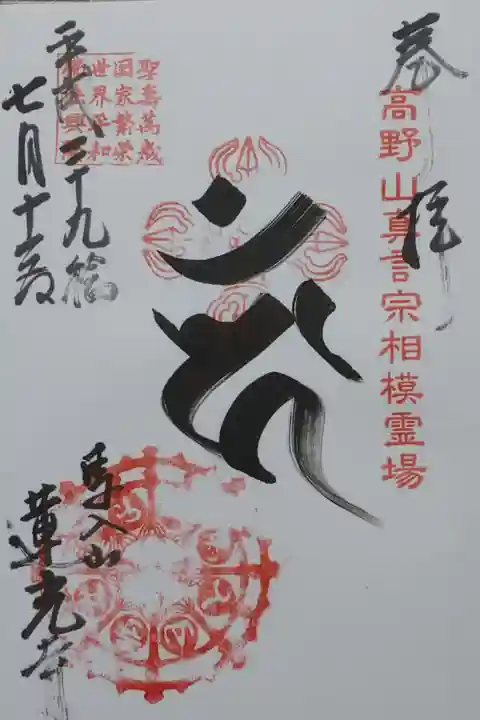 奉拝
高野山真言宗相模霊場
聖寿萬歳
国家繁栄
世界平和
平成二十九稔
七月十二日
馬入山
蓮光寺